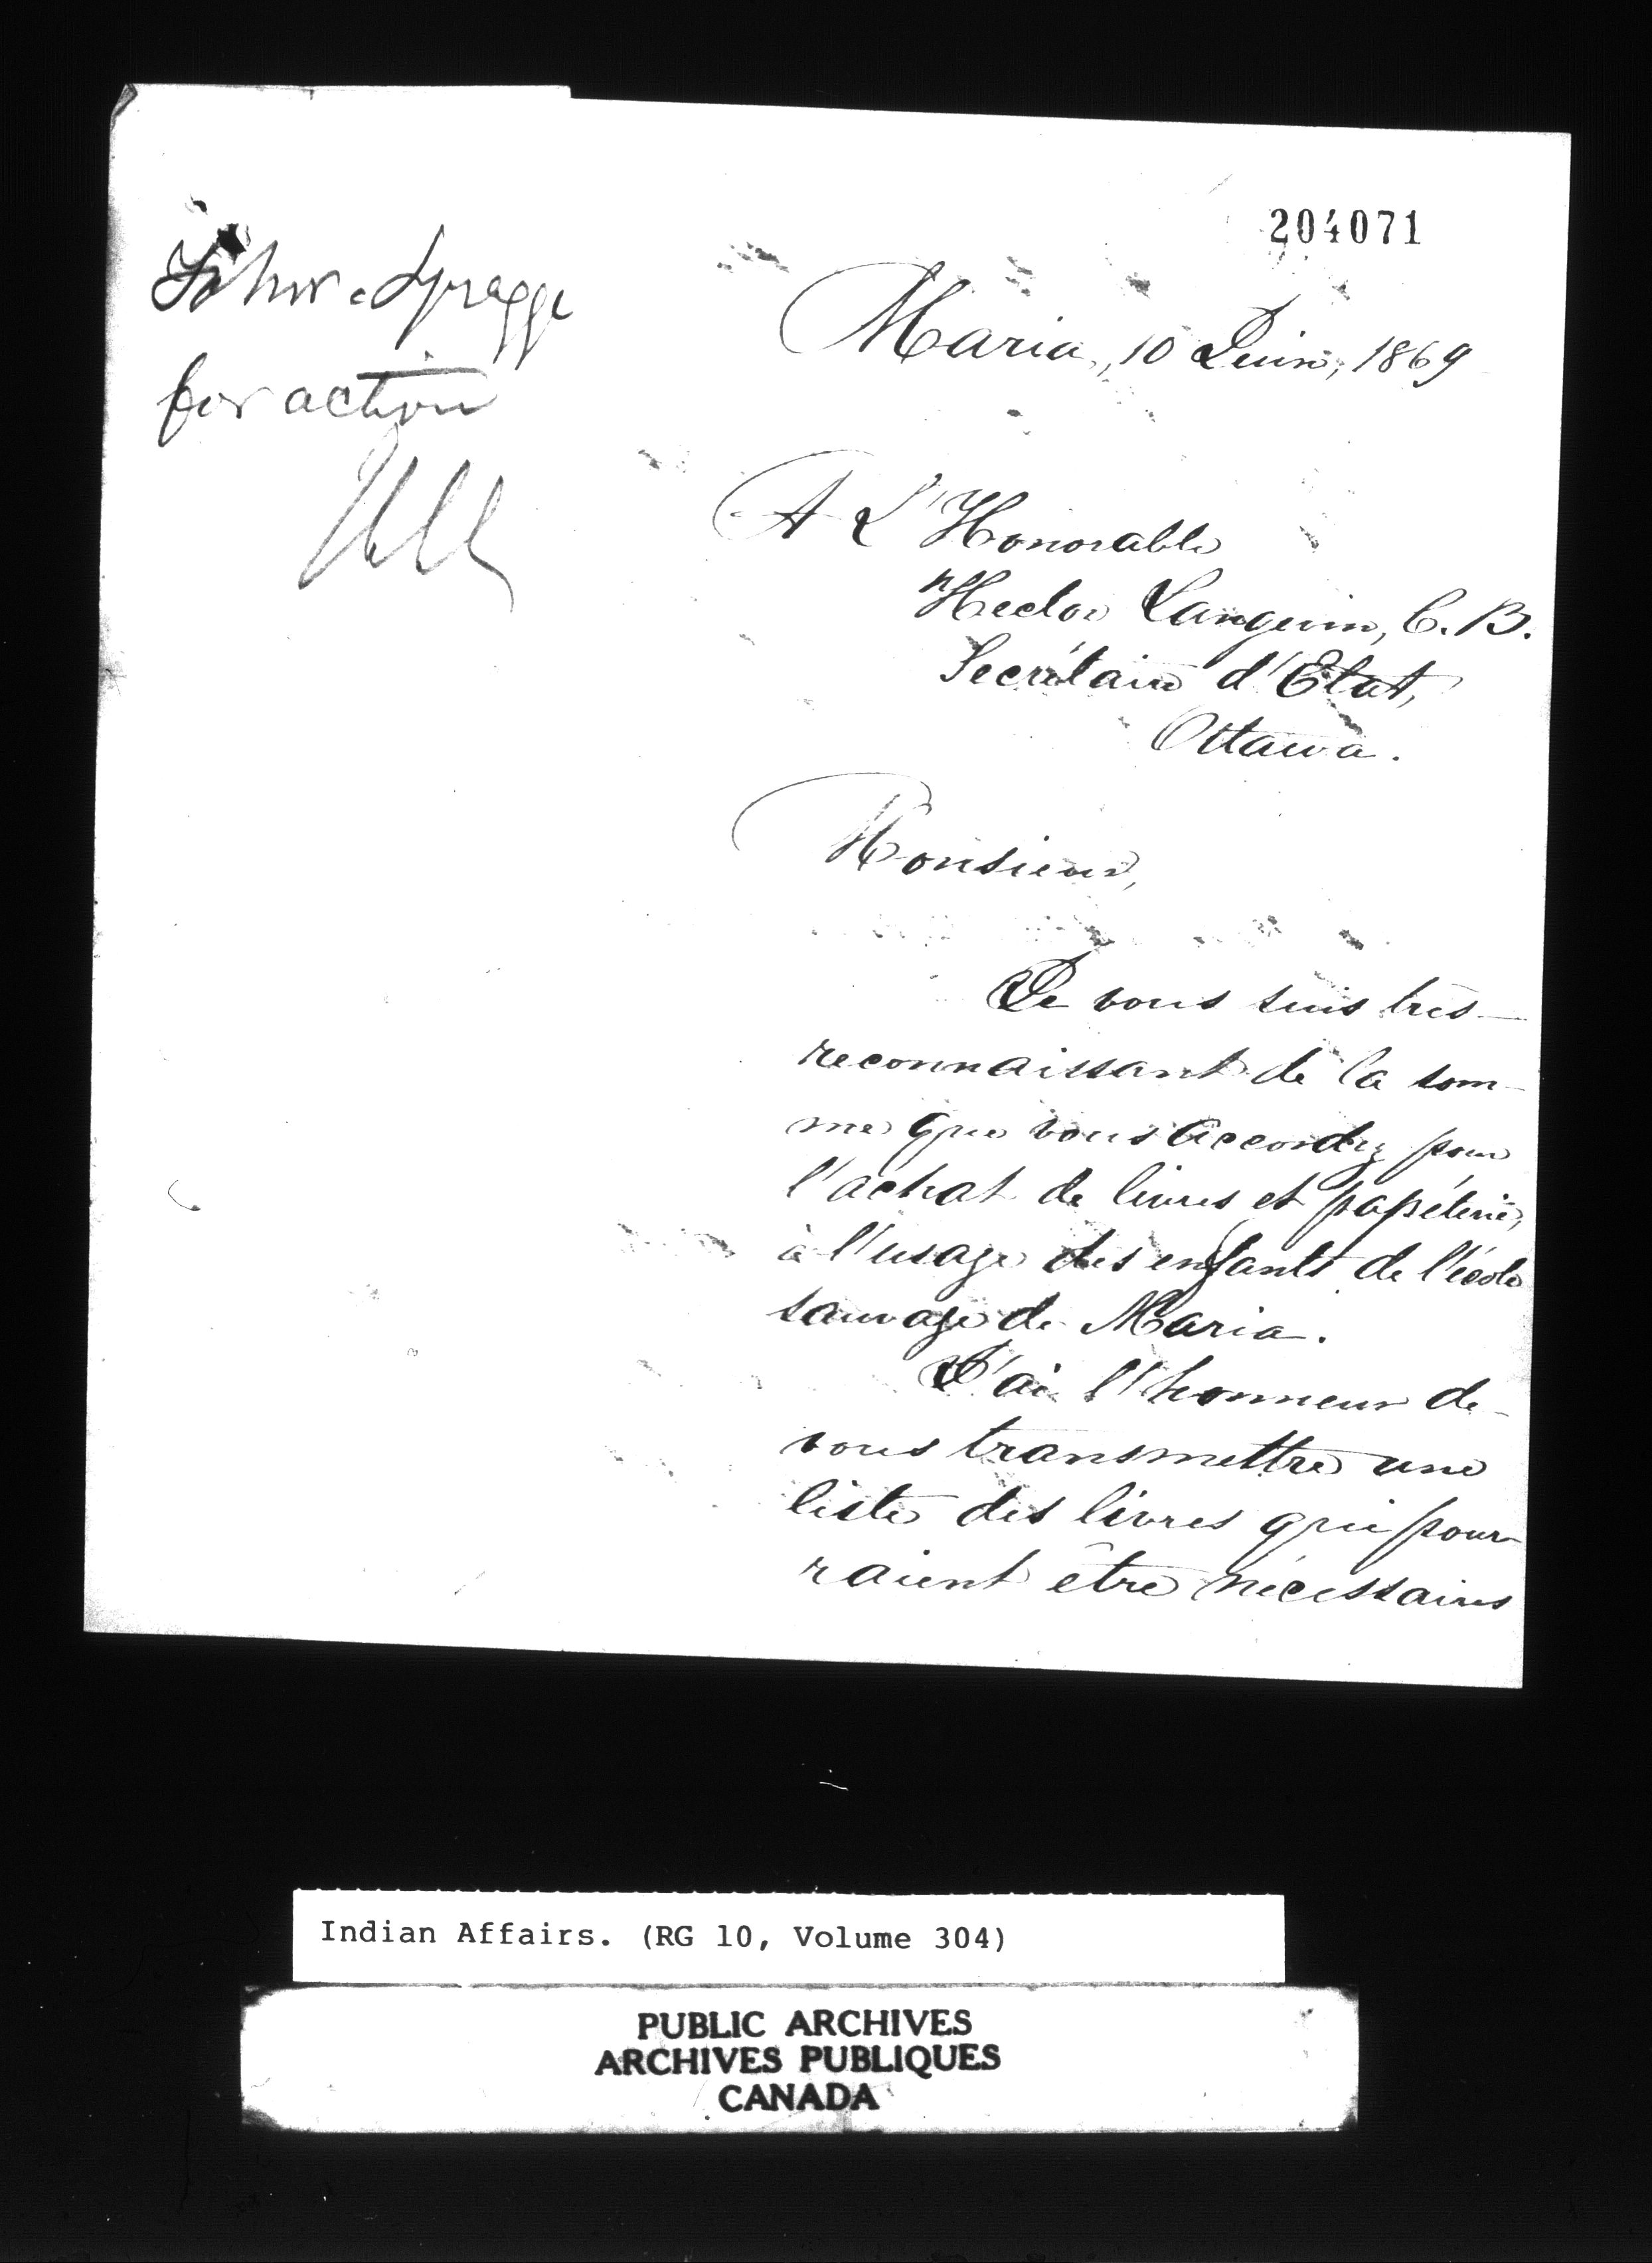 204071
To Mr. Spragge
for action
HLL
Maria, 10 Juin, 1869
A L'Honorable
Hector Langevin, C. B.
Secrétaire d'Etat,
Ottawa.
Monsieur,
Je vous suis très-
reconnaissant de la som-
me que vous accordez pour
l'achat de livres et papéterie,
à l'usage des enfants de l'école
sauvage de Maria.
J'ai l'honneur de
vous transmettre une
liste des livres qui pour-
raient être nécessaires
Indian Affairs. (RG 10, Volume 304)
PUBLIC ARCHIVES
ARCHIVES PUBLIQUES
CANADA